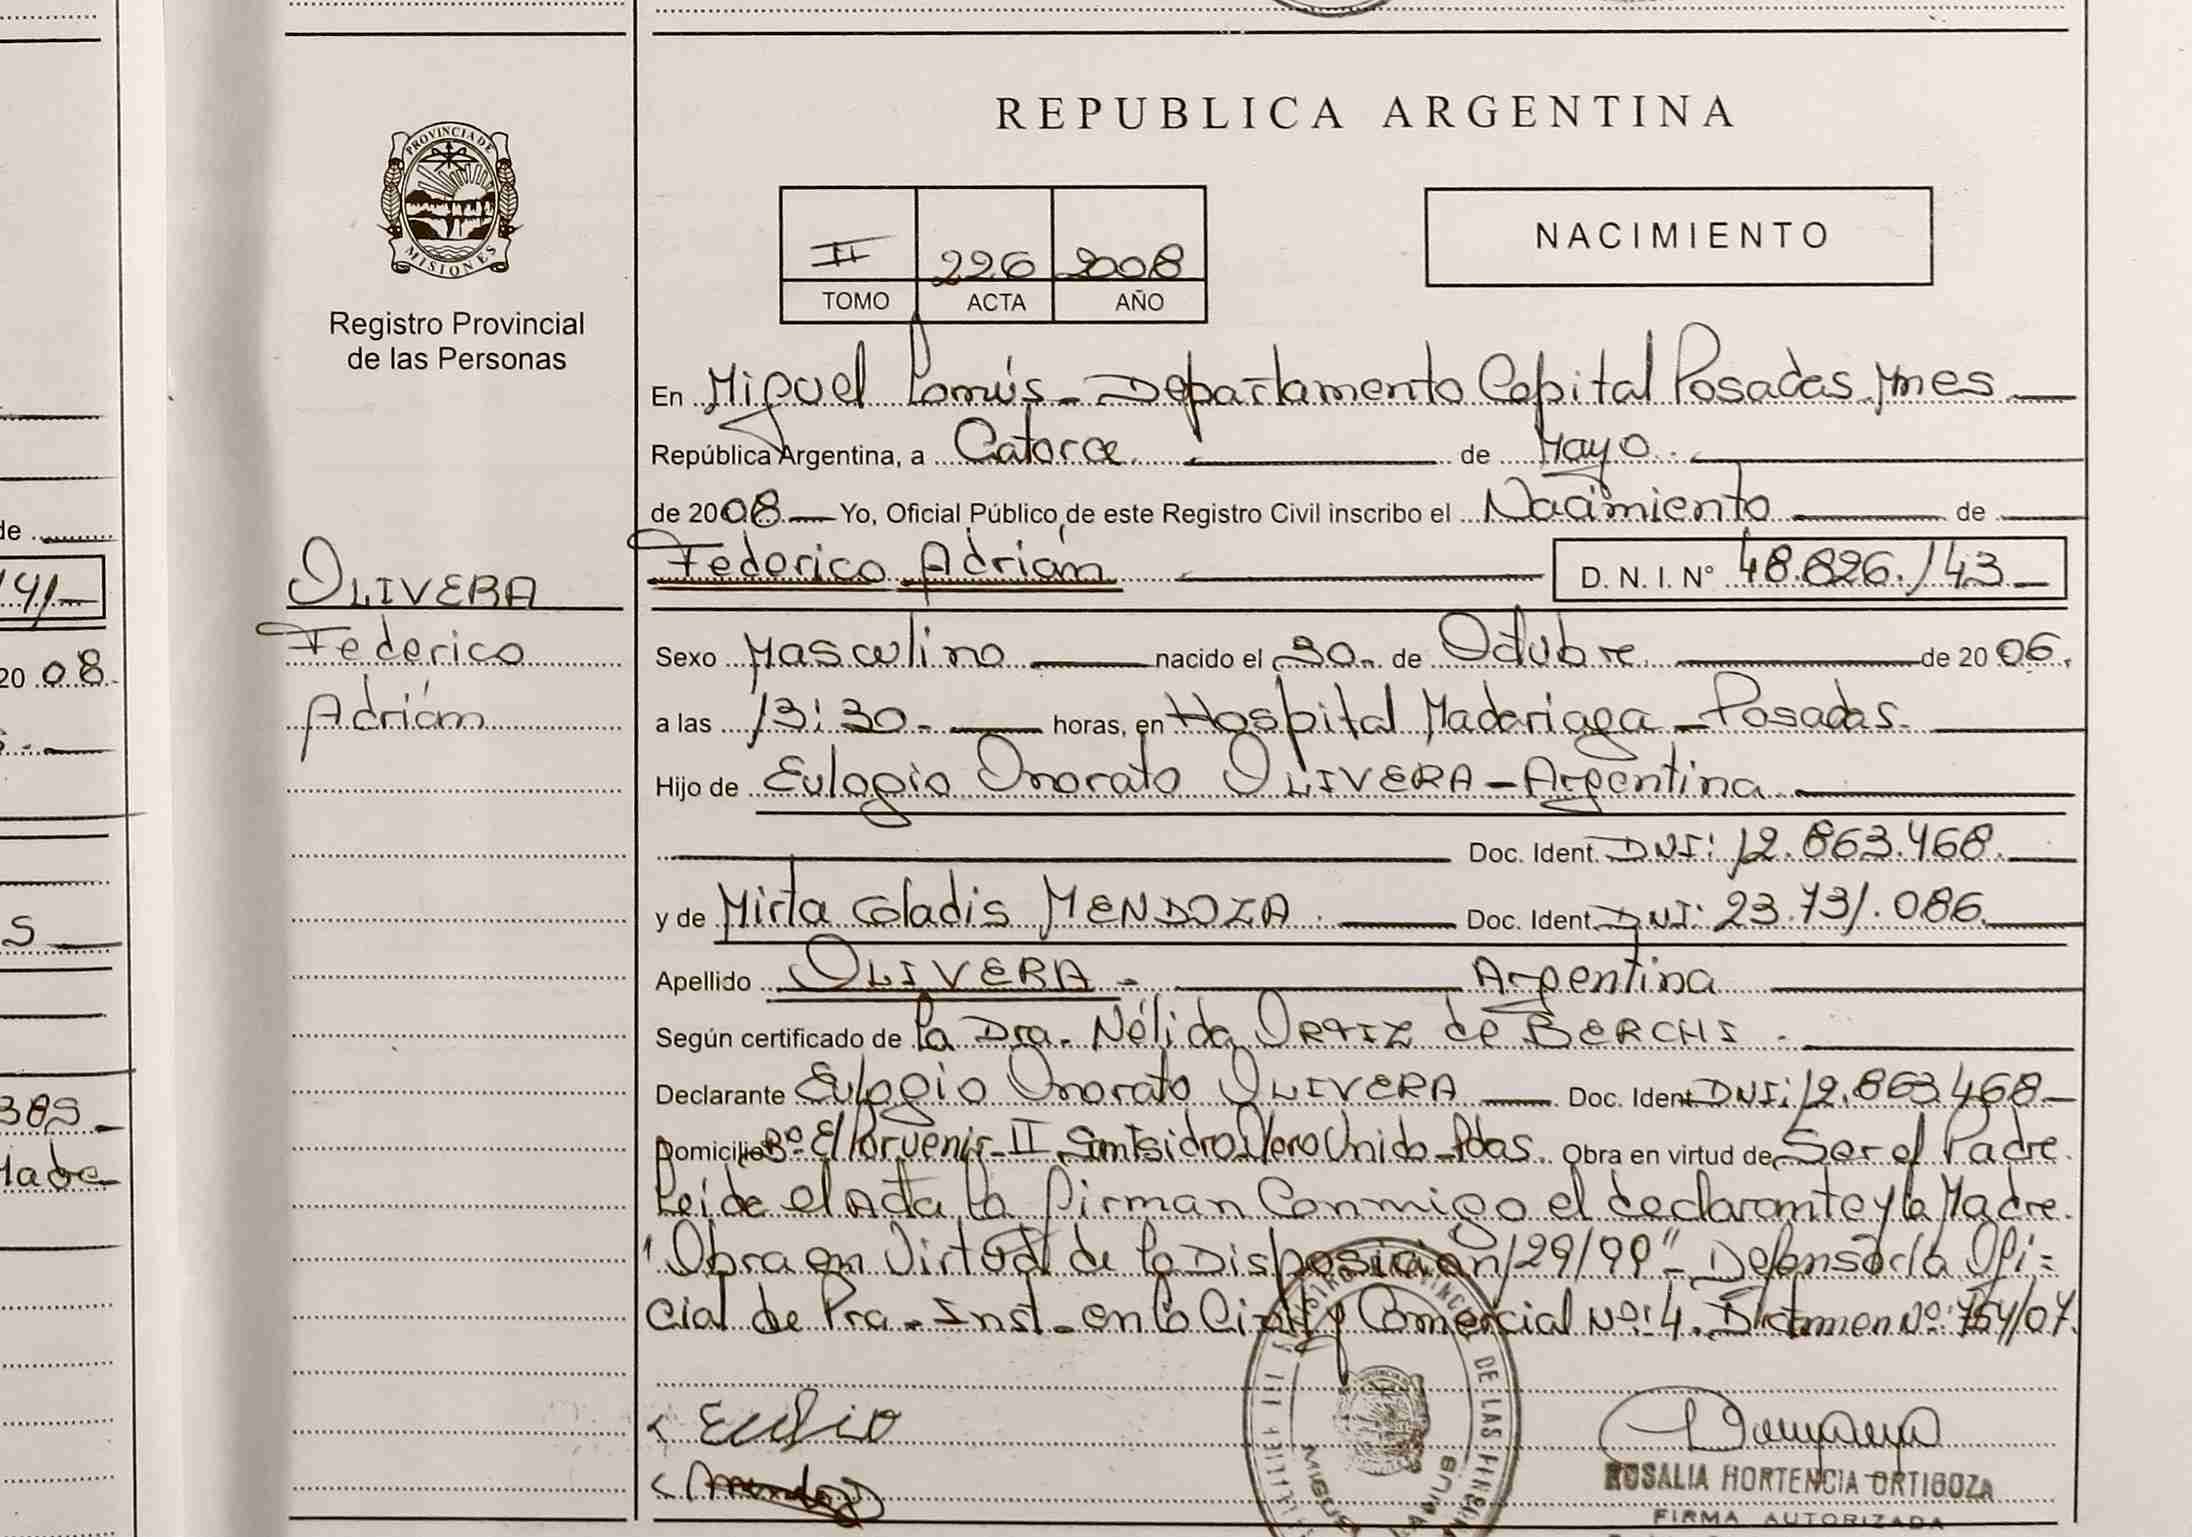 REPUBLICA ARGENTINA
PROVINCIA DE
MISIONES
Registro Provincial
de las Personas
II 226 2008
TOMO ACTA AÑO
NACIMIENTO
En Miguel Lanús - Departamento Capital Posadas Mnes
República Argentina, a Catorce de Mayo
de 2008 Yo, Oficial Público de este Registro Civil inscribo el Nacimiento de
Federico Adrián D. N. I. N° 48.826.143
OLIVERA
Federico
Adrián
Sexo Masculino nacido el 30 de Octubre de 2006.
a las 13:30 horas, en Hospital Madariaga - Posadas.
Hijo de Eulogio Onorato OLIVERA - Argentina
Doc. Ident. DNI: 12.863.468.
y de Mirta Gladis MENDOZA. Doc. Ident. DNI: 23.731.086
Apellido OLIVERA - Argentina
Según certificado de la Dra. Nélida ORTIZ de BERCHI -
Declarante Eulogio Onorato OLIVERA Doc. Ident. DNI: 12.863.468
Domicilio Bº El Porvenir II San Isidro Unido Pdas. Obra en virtud de Ser el Padre.
Leída el Acta la firman Conmigo el declarante y la Madre.
"Obra en Virtud de la Disposición 129/99" - Defensoría Ofi=
cial de Pra. Inst. en lo Civil y Comercial Nº: 4. Dictamen Nº: 754/07.
ROSALIA HORTENCIA ORTIGOZA
FIRMA AUTORIZADA
141
2008
385
Madre